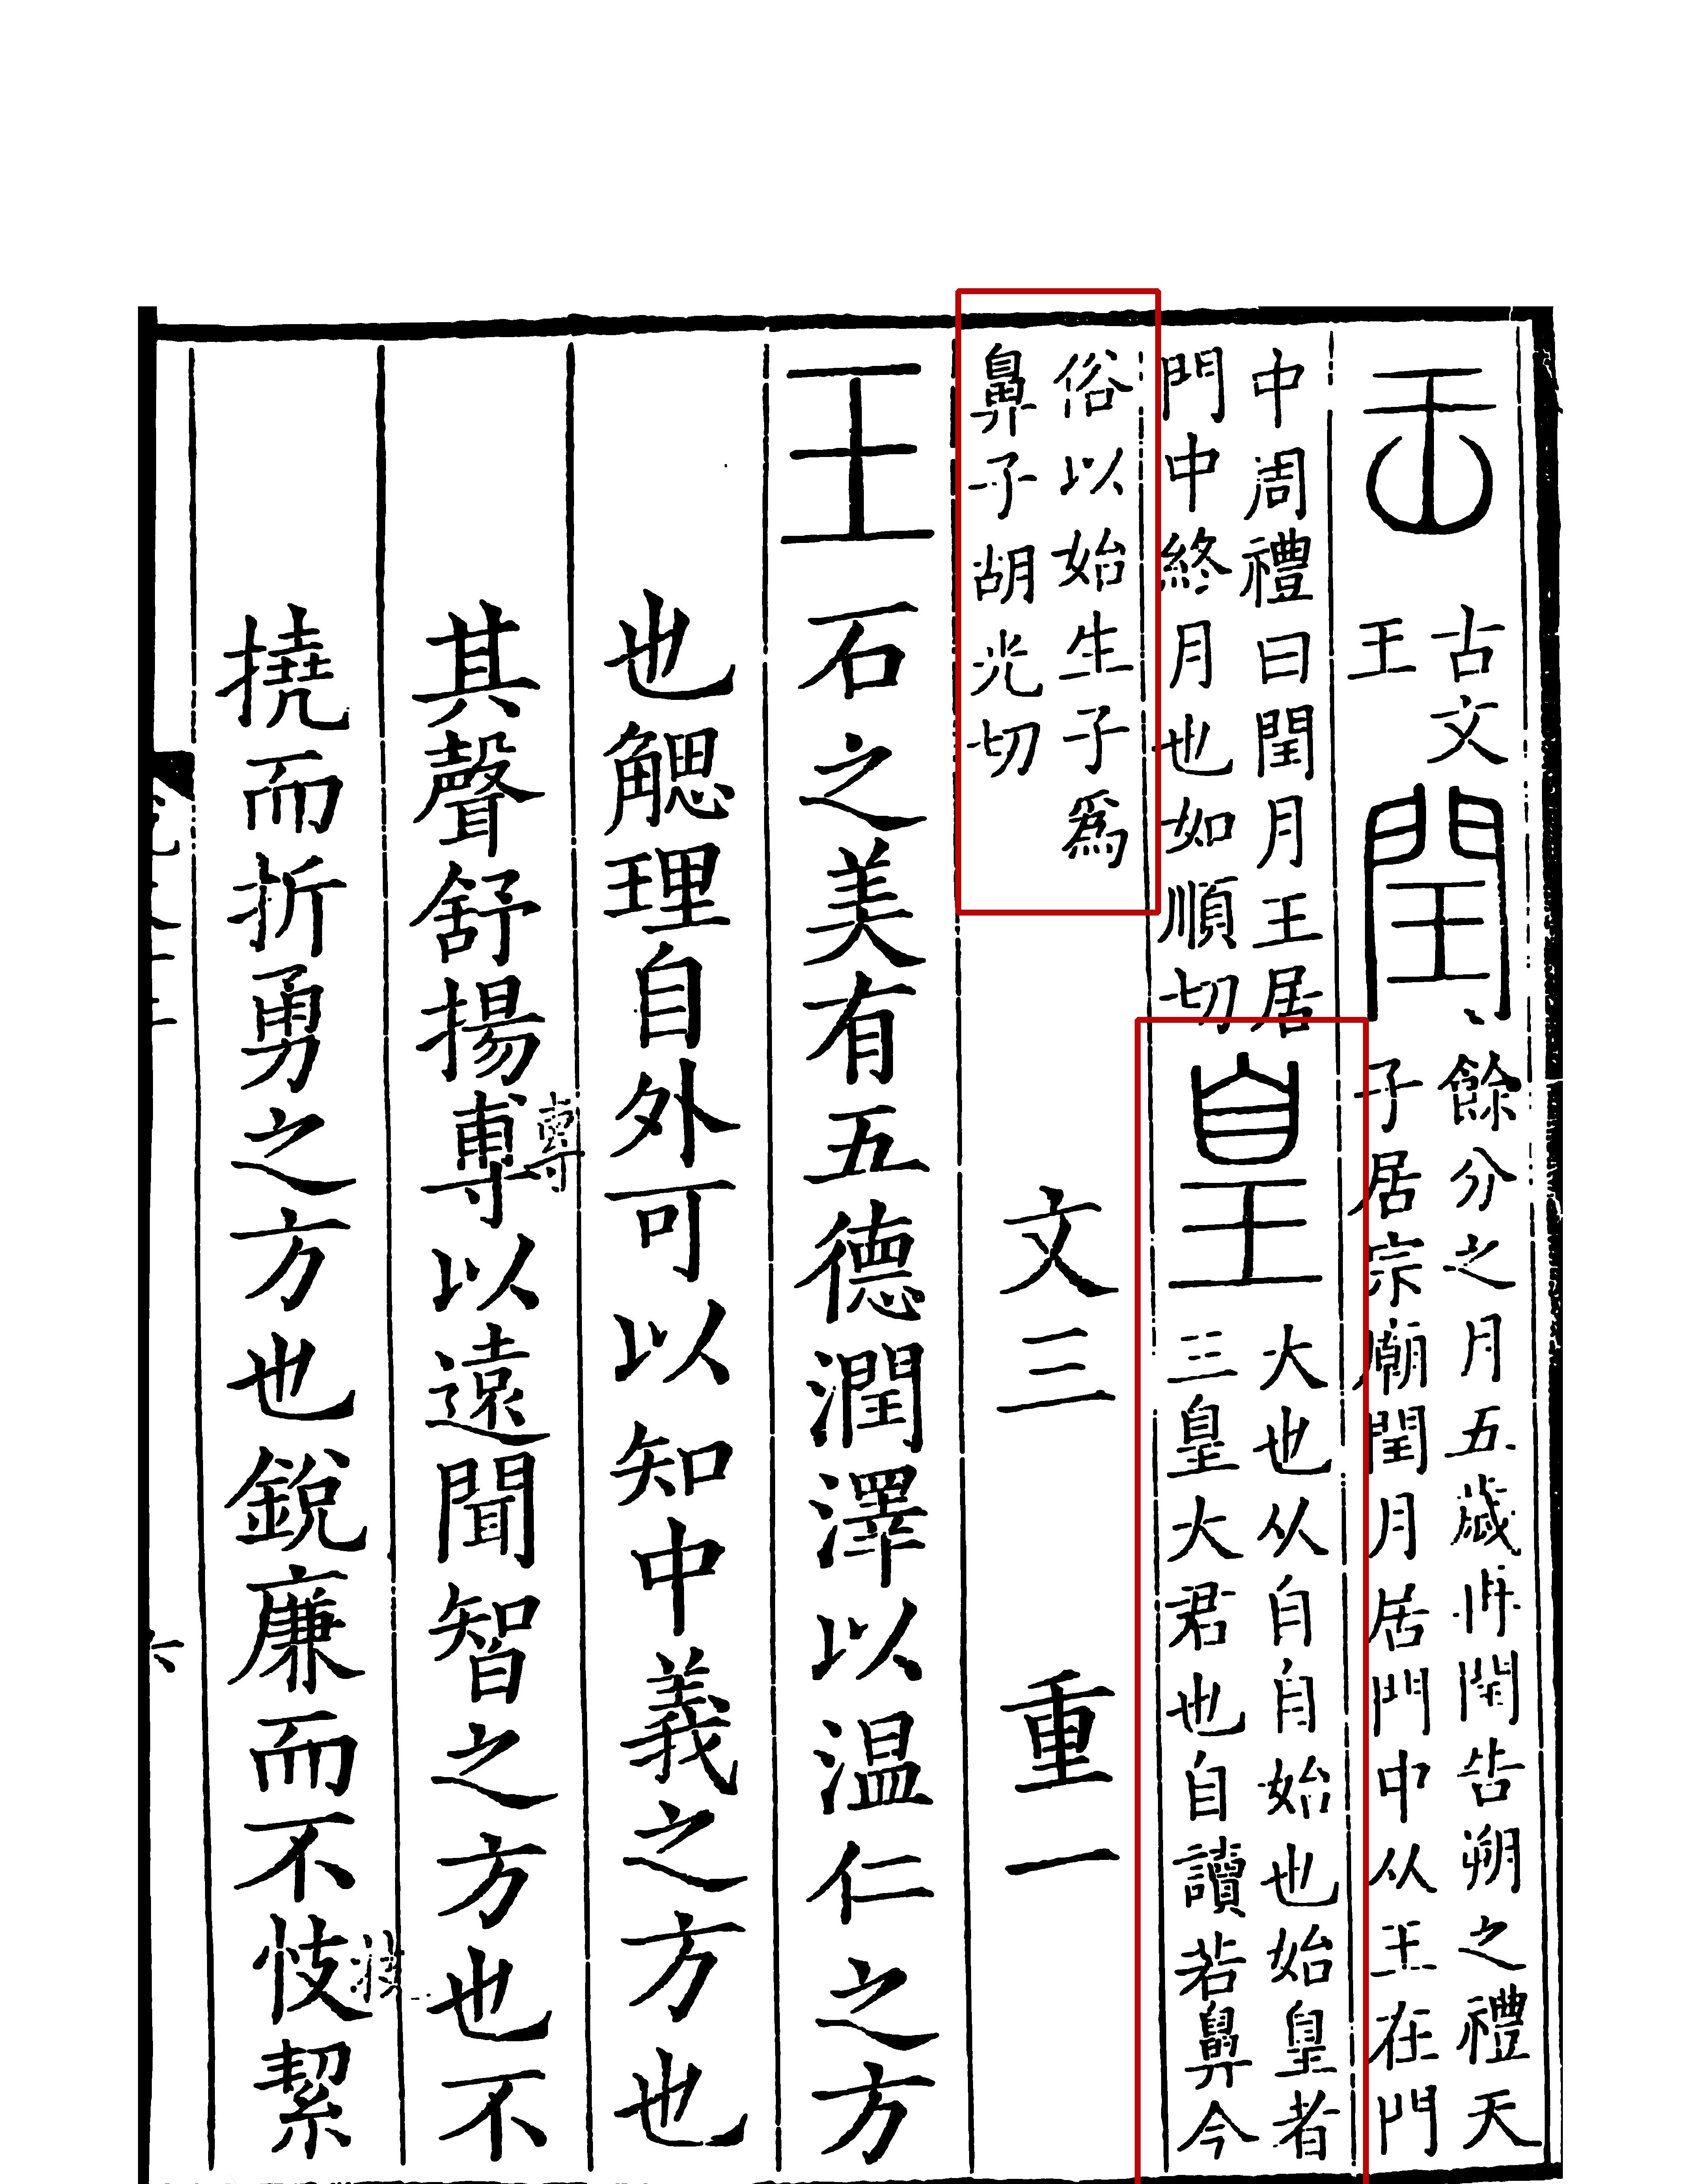 𠙻古文
王
閏餘分之月五歲再閏告朔之禮天
子居宗廟閏月居門中从王在門
中周禮曰閏月王居
門中終月也如順切
皇大也从自自始也始皇者
三皇大君也自讀若鼻今
俗以始生子爲
鼻子胡光切
文三 重一
王石之美有五德潤澤以温仁之方
也䚡理自外可以知中義之方也
其聲舒揚尃以遠聞智之方也不
撓而折勇之方也銳廉而不忮絜